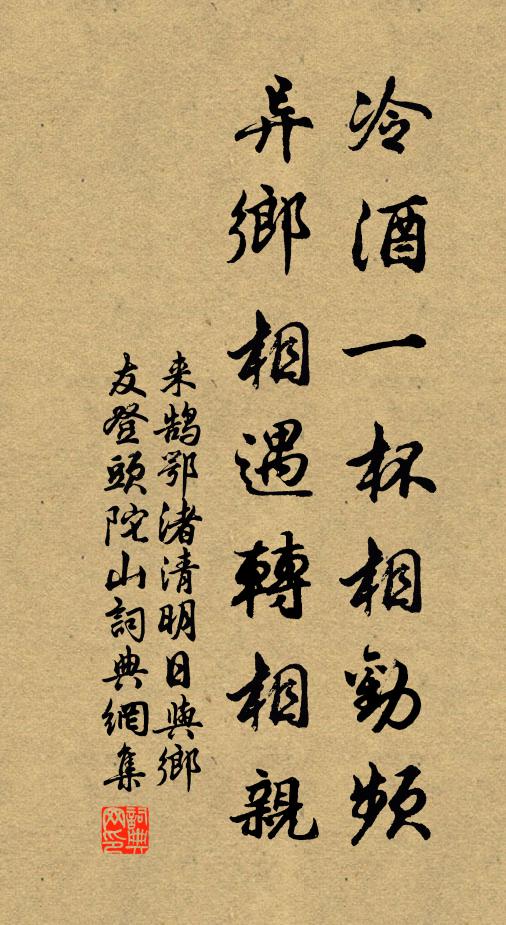 冷酒一杯相勸頻
异鄉相遇轉相親
来鹄鄂渚清明日與鄉
友登頭陀山詞典網集
詞典网印